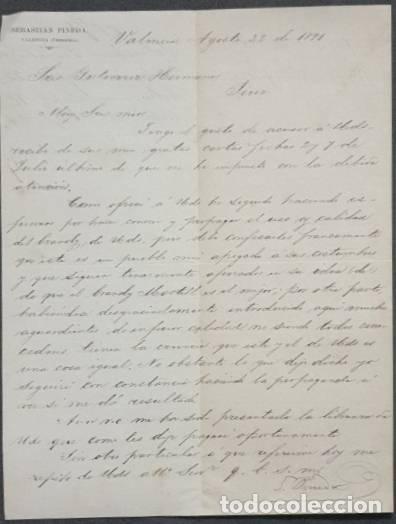 SEBASTIÁN PINEDA
VALENCIA (Venezuela)
Valencia Agosto 22 de 1891
Sres Gutierrez Hermanos
Jerez
Muy Sres mios
Tengo el gusto de acusar á Uds.
recibo de sus muy gratas cartas fechas 2 y 7 de
Julio último de que me he impuesto con la debida
atención.
Como ofreci á Uds he seguido haciendo es-
fuerzos por hacer conocer y propagar el uso y calidad
del brandy de Uds, pero debo confesarles francamente
que este es un pueblo muy apegado a sus costumbres
y que siguen tenazmente aferrados en su idea de
de que el brandy Martell es el mejor; por otra parte,
habiendose desgraciadamente introducido aquí mucho
aguardiente de inferior calidad no siendo todos cono-
cedores tienen la creencia que este y el de Uds es
una cosa igual. No obstante lo que dejo dicho yo
seguiré con constancia haciendo la propaganda á
ver si me dá resultado.
Aun no me ha sido presentada la libranza de
Uds que como les dije pagaré oportunamente
Sin otro particular á que referirme hoy me
repito de Uds Atto Servr q. b. s. m.
S. Pineda
todocoleccion.net